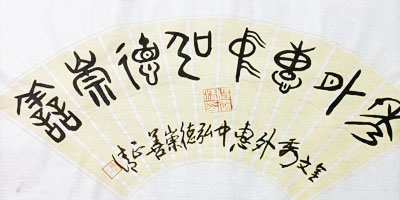 秀外惠中弘德崇善
金文秀外惠中弘德崇善